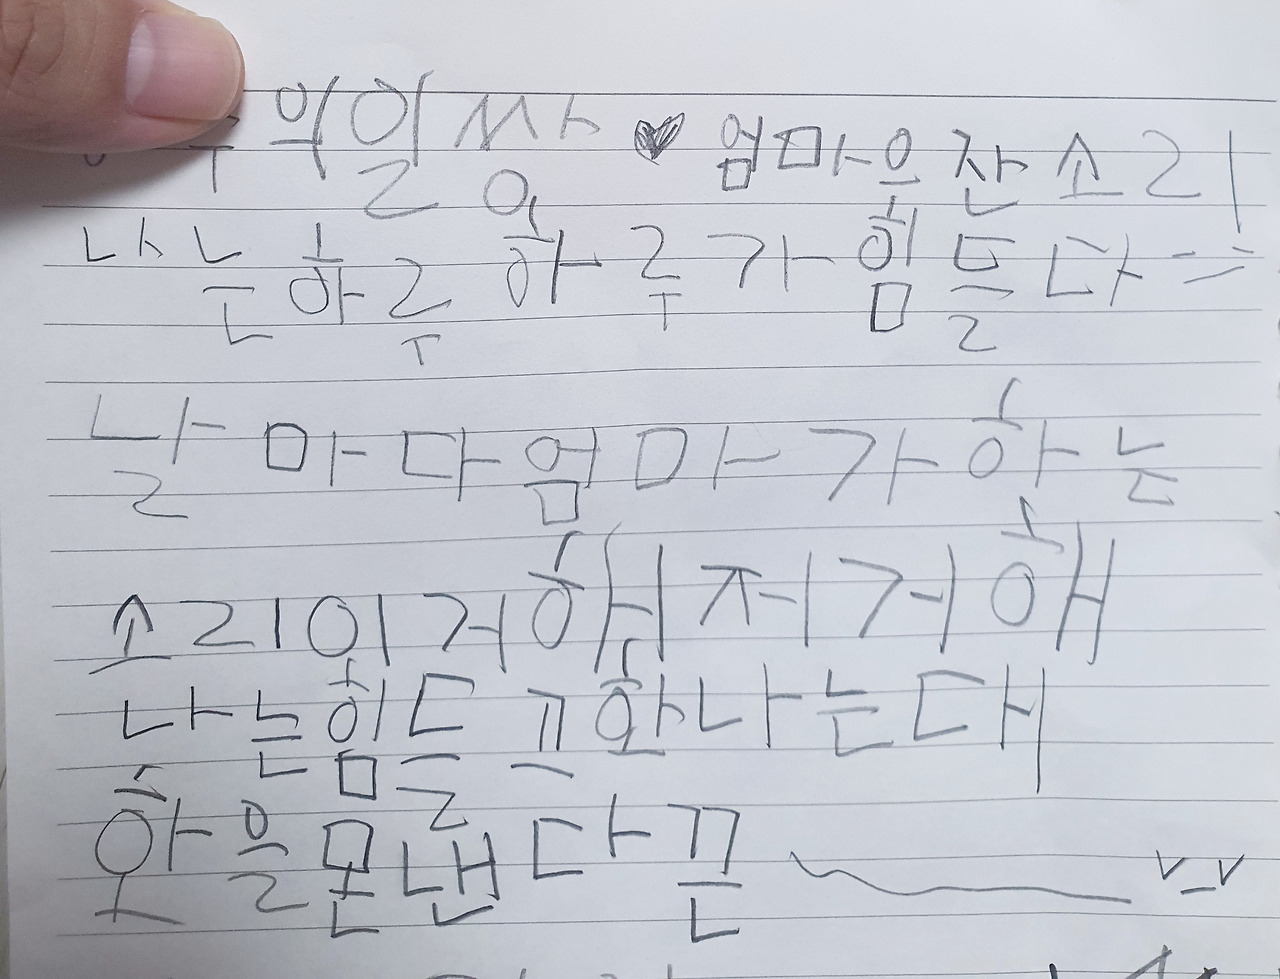 의일쌍 ♥ 엄마으잔소리
나는하루 하루가힘들다
날마다엄마가하는
소리이거해저거해
나는힘들끄화나는대
화을몬낸다끈 v_v